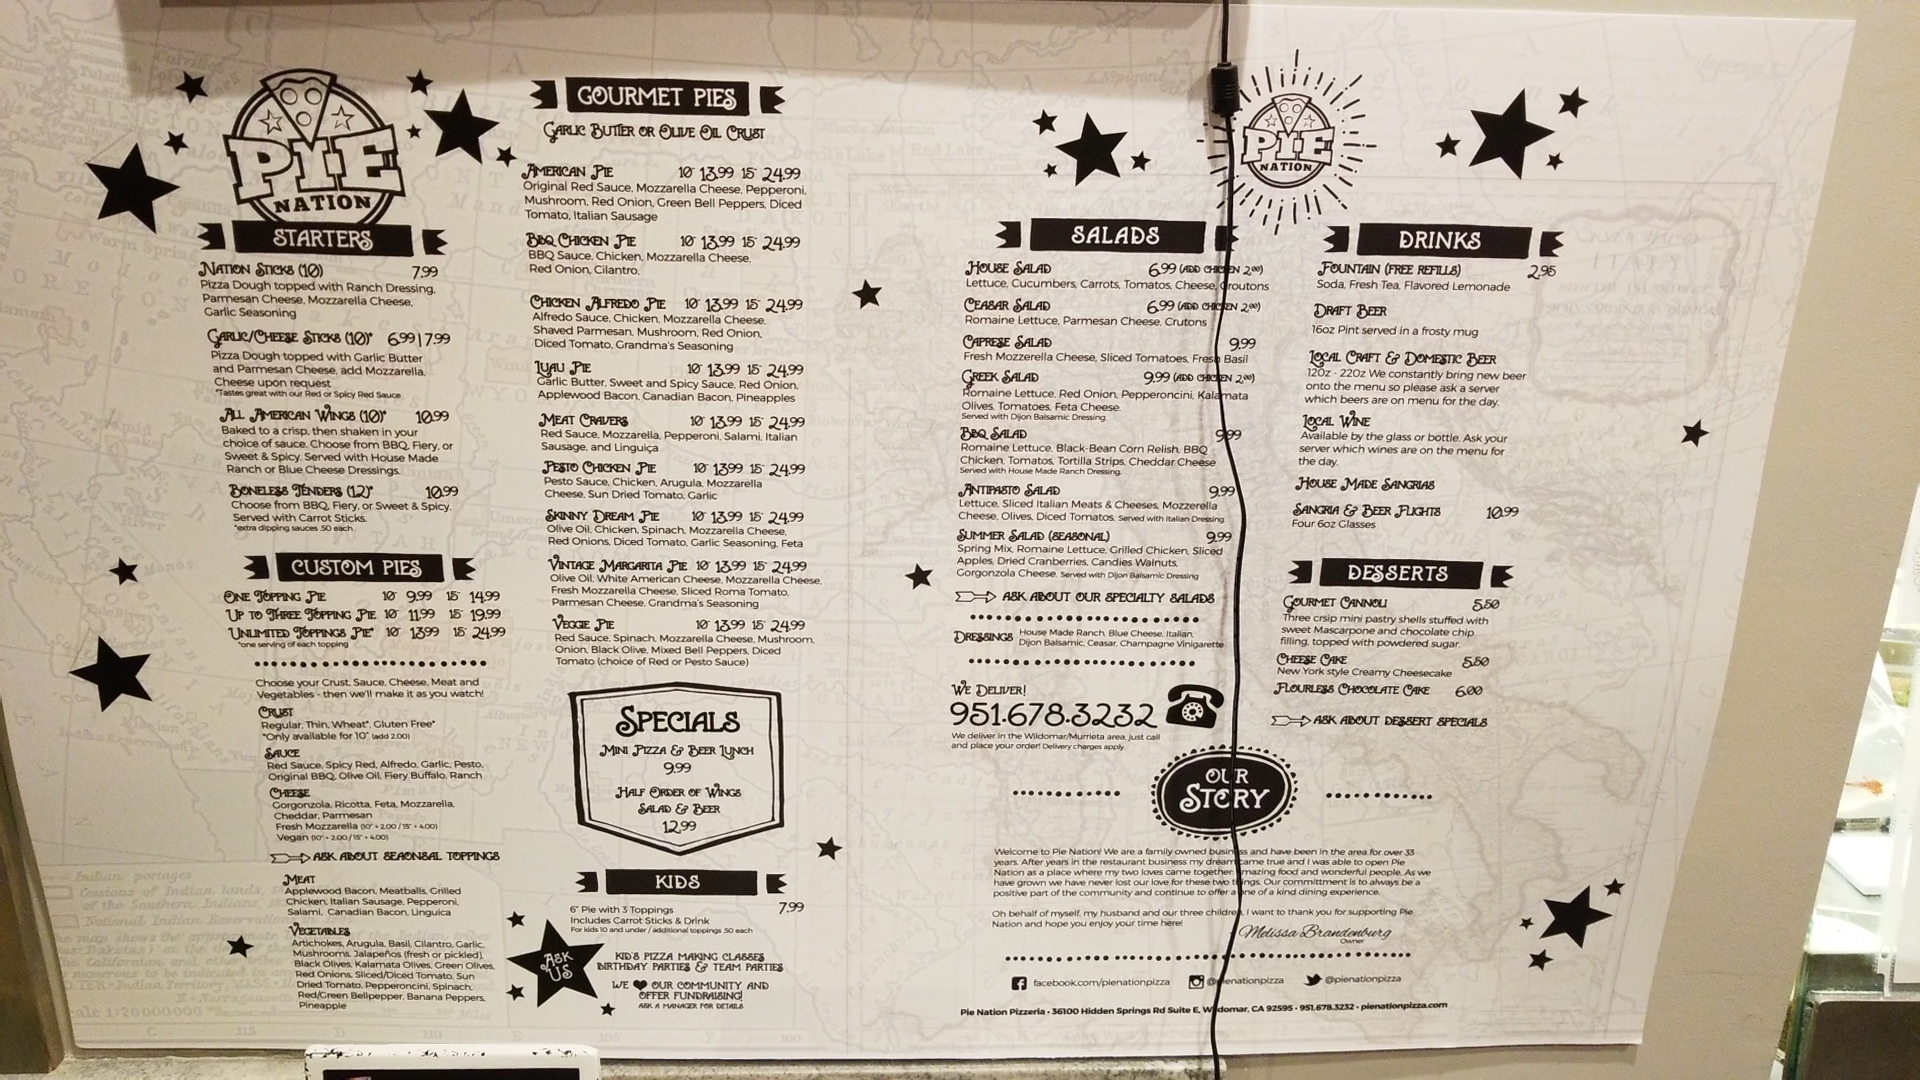 PIE
NATION
STARTERS
NATION STICKS (10) 7.99
Pizza Dough topped with Ranch Dressing,
Parmesan Cheese, Mozzarella Cheese,
Garlic Seasoning
GARLIC/CHEESE STICKS (10)* 6.99 | 7.99
Pizza Dough topped with Garlic Butter
and Parmesan Cheese, add Mozzarella,
Cheese upon request
*Tastes great with our Red or Spicy Red Sauce
ALL AMERICAN WINGS (10)* 10.99
Baked to a crisp, then shaken in your
choice of sauce. Choose from BBQ, Fiery, or
Sweet & Spicy. Served with House Made
Ranch or Blue Cheese Dressings.
BONELESS TENDERS (12)* 10.99
Choose from BBQ, Fiery, or Sweet & Spicy.
Served with Carrot Sticks.
*extra dipping sauces .50 each
CUSTOM PIES
ONE TOPPING PIE 10" 9.99 15" 14.99
UP TO THREE TOPPING PIE 10" 11.99 15" 19.99
UNLIMITED TOPPINGS PIE* 10" 13.99 15" 24.99
*one serving of each topping
Choose your Crust, Sauce, Cheese, Meat and
Vegetables - then we'll make it as you watch!
CRUST
Regular, Thin, Wheat*, Gluten Free*
*Only available for 10" (add 2.00)
SAUCE
Red Sauce, Spicy Red, Alfredo, Garlic, Pesto,
Original BBQ, Olive Oil, Fiery Buffalo, Ranch
CHEESE
Gorgonzola, Ricotta, Feta, Mozzarella,
Cheddar, Parmesan
Fresh Mozzarella (10" + 2.00 / 15" + 4.00)
Vegan (10" + 2.00 / 15" + 4.00)
ASK ABOUT SEAONSAL TOPPINGS
MEAT
Applewood Bacon, Meatballs, Grilled
Chicken, Italian Sausage, Pepperoni,
Salami, Canadian Bacon, Linguica
VEGETABLES
Artichokes, Arugula, Basil, Cilantro, Garlic,
Mushrooms, Jalapeños (fresh or pickled),
Black Olives, Kalamata Olives, Green Olives,
Red Onions, Sliced/Diced Tomato, Sun
Dried Tomato, Pepperoncini, Spinach,
Red/Green Bellpepper, Banana Peppers,
Pineapple
GOURMET PIES
GARLIC BUTTER OR OLIVE OIL CRUST
AMERICAN PIE 10" 13.99 15" 24.99
Original Red Sauce, Mozzarella Cheese, Pepperoni,
Mushroom, Red Onion, Green Bell Peppers, Diced
Tomato, Italian Sausage
BBQ CHICKEN PIE 10" 13.99 15" 24.99
BBQ Sauce, Chicken, Mozzarella Cheese,
Red Onion, Cilantro,
CHICKEN ALFREDO PIE 10" 13.99 15" 24.99
Alfredo Sauce, Chicken, Mozzarella Cheese,
Shaved Parmesan, Mushroom, Red Onion,
Diced Tomato, Grandma's Seasoning
LUAU PIE 10" 13.99 15" 24.99
Garlic Butter, Sweet and Spicy Sauce, Red Onion,
Applewood Bacon, Canadian Bacon, Pineapples
MEAT CRAVERS 10" 13.99 15" 24.99
Red Sauce, Mozzarella, Pepperoni, Salami, Italian
Sausage, and Linguiça
PESTO CHICKEN PIE 10" 13.99 15" 24.99
Pesto Sauce, Chicken, Arugula, Mozzarella
Cheese, Sun Dried Tomato, Garlic
SKINNY DREAM PIE 10" 13.99 15" 24.99
Olive Oil, Chicken, Spinach, Mozzarella Cheese,
Red Onions, Diced Tomato, Garlic Seasoning, Feta
VINTAGE MARGARITA PIE 10" 13.99 15" 24.99
Olive Oil, White American Cheese, Mozzarella Cheese,
Fresh Mozzarella Cheese, Sliced Roma Tomato,
Parmesan Cheese, Grandma's Seasoning
VEGGIE PIE 10" 13.99 15" 24.99
Red Sauce, Spinach, Mozzarella Cheese, Mushroom,
Onion, Black Olive, Mixed Bell Peppers, Diced
Tomato (choice of Red or Pesto Sauce)
SPECIALS
MINI PIZZA & BEER LUNCH
9.99
HALF ORDER OF WINGS
SALAD & BEER
12.99
KIDS
6" Pie with 3 Toppings 7.99
Includes Carrot Sticks & Drink
For kids 10 and under / additional toppings .50 each
ASK
US
KID'S PIZZA MAKING CLASSES
BIRTHDAY PARTIES & TEAM PARTIES
WE ♥ OUR COMMUNITY AND
OFFER FUNDRAISING!
ASK A MANAGER FOR DETAILS
PIE
NATION
SALADS
HOUSE SALAD 6.99 (ADD CHICKEN 2.00)
Lettuce, Cucumbers, Carrots, Tomatos, Cheese, Croutons
CEASAR SALAD 6.99 (ADD CHICKEN 2.00)
Romaine Lettuce, Parmesan Cheese, Crutons
CAPRESE SALAD 9.99
Fresh Mozzerella Cheese, Sliced Tomatoes, Fresh Basil
GREEK SALAD 9.99 (ADD CHICKEN 2.00)
Romaine Lettuce, Red Onion, Pepperoncini, Kalamata
Olives, Tomatoes, Feta Cheese.
Served with Dijon Balsamic Dressing
BBQ SALAD 9.99
Romaine Lettuce, Black-Bean Corn Relish, BBQ
Chicken, Tomatos, Tortilla Strips, Cheddar Cheese
Served with House Made Ranch Dressing.
ANTIPASTO SALAD 9.99
Lettuce, Sliced Italian Meats & Cheeses, Mozzerella
Cheese, Olives, Diced Tomatos. Served with Italian Dressing
SUMMER SALAD (SEASONAL) 9.99
Spring Mix, Romaine Lettuce, Grilled Chicken, Sliced
Apples, Dried Cranberries, Candies Walnuts,
Gorgonzola Cheese. Served with Dijon Balsamic Dressing
ASK ABOUT OUR SPECIALTY SALADS
DRESSINGS House Made Ranch, Blue Cheese, Italian,
Dijon Balsamic, Ceasar, Champagne Vinigarette
WE DELIVER!
951.678.3232
We deliver in the Wildomar/Murrieta area, just call
and place your order! Delivery charges apply.
DRINKS
FOUNTAIN (FREE REFILLS) 2.95
Soda, Fresh Tea, Flavored Lemonade
DRAFT BEER
16oz Pint served in a frosty mug
LOCAL CRAFT & DOMESTIC BEER
12Oz - 22Oz We constantly bring new beer
onto the menu so please ask a server
which beers are on menu for the day.
LOCAL WINE
Available by the glass or bottle. Ask your
server which wines are on the menu for
the day.
HOUSE MADE SANGRIAS
SANGRIA & BEER FLIGHTS 10.99
Four 6oz Glasses
DESSERTS
GOURMET CANNOLI 5.50
Three crsip mini pastry shells stuffed with
sweet Mascarpone and chocolate chip
filling, topped with powdered sugar.
CHEESE CAKE 5.50
New York style Creamy Cheesecake
FLOURLESS CHOCOLATE CAKE 6.00
ASK ABOUT DESSERT SPECIALS
OUR
STORY
Welcome to Pie Nation! We are a family owned business and have been in the area for over 33
years. After years in the restaurant business my dream came true and I was able to open Pie
Nation as a place where my two loves came together, amazing food and wonderful people. As we
have grown we have never lost our love for these two things. Our committment is to always be a
positive part of the community and continue to offer a one of a kind dining experience.
Oh behalf of myself, my husband and our three children, I want to thank you for supporting Pie
Nation and hope you enjoy your time here!
Melissa Brandenburg
Owner
facebook.com/pienationpizza @pienationpizza @pienationpizza
Pie Nation Pizzeria • 36100 Hidden Springs Rd Suite E, Wildomar, CA 92595 • 951.678.3232 • pienationpizza.com